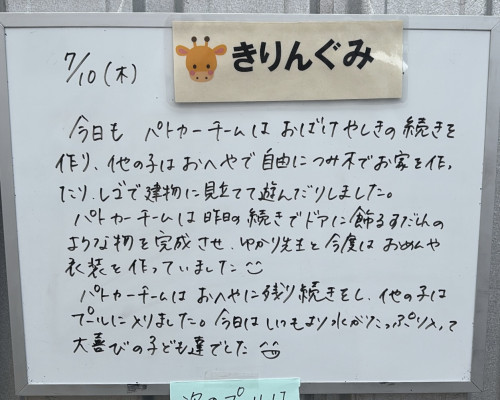 きりんぐみ
7/10(木)
今日も パトカーチームは おばけやしきの続きを
作り、他の子は おへやで 自由に つみ木で お家を 作っ
たり、レゴで 建物に 見立てて 遊んだりしました。
パトカーチームは 昨日の 続きで ドアに 飾る すだれの
ような物を 完成させ、ゆかり先生と 今度は おめんや
衣装を 作っていました
パトカーチームは おへやに 残り 続きをし、他の子は
プールに 入りました。今日は いつもより 水が たっぷり入って
大喜びの 子ども達でした
次のプールは